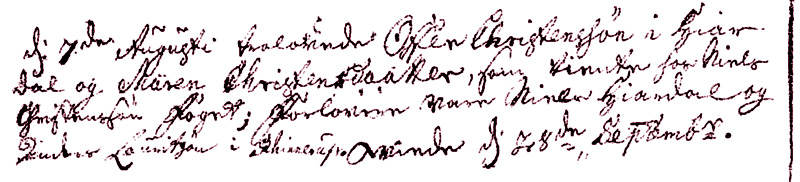 dj 7de Augusti trolovede Christenssøn i Hiar
dal og Maren Christensdaatter, som tiente hos Niels
Christenssøn Foget; Forlovere vare Niels Hiardal og
Lauritzøn i viede dj 28de Septembr.